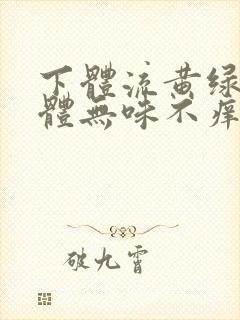 下體流黄绿
體無味不痒
破九霄